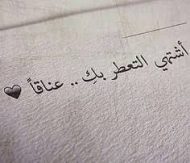 أشتهي التعطر بكِ .. عناقاً 🖤